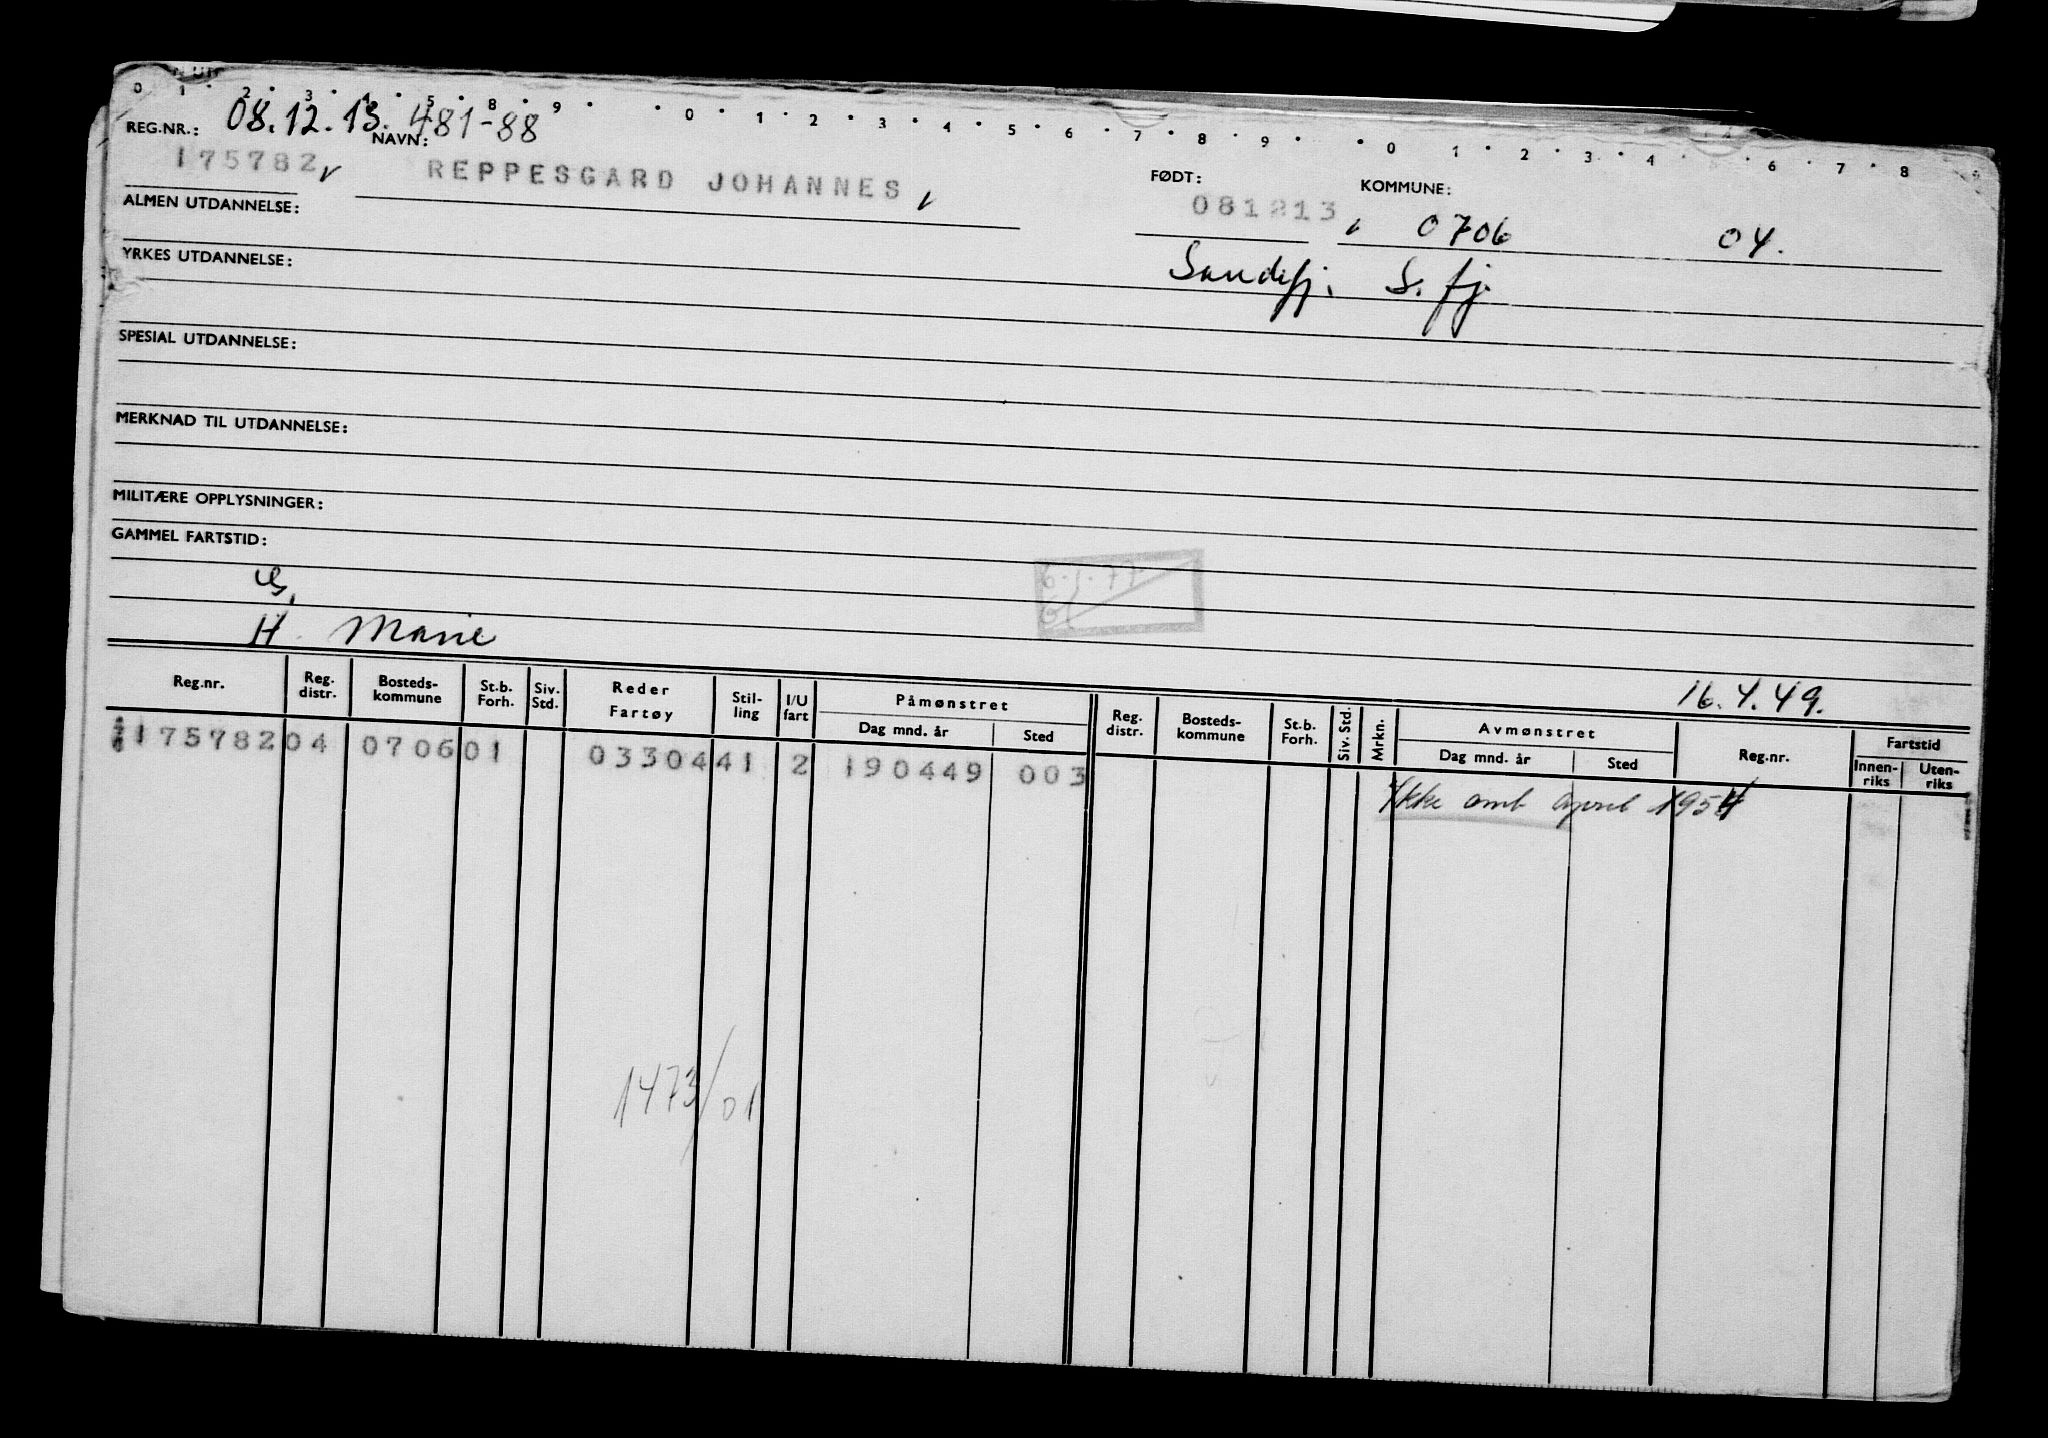 0 1 · 2 · 3 · 4 · 5 · 8 · 9 · 0 · 1 · 2 · 3 · 4 · 5 · 6 · 7 · 8 · 9 · · 0 · 1 · 2 · 3 · 4 · · 6 · 7 · 8
REG.NR.: 08.12.13. 481-88
NAVN:
175782 REPPESGARD JOHANNES
FØDT: 081213
KOMMUNE: 0706 04.
ALMEN UTDANNELSE:
Sandefj. S. fj.
YRKES UTDANNELSE:
SPESIAL UTDANNELSE:
MERKNAD TIL UTDANNELSE:
MILITÆRE OPPLYSNINGER:
GAMMEL FARTSTID:
H. Marie
16.4.49.
Reg.nr. Reg. distr. Bosteds- kommune St.b. Forh. Siv. Std. Reder Fartøy Stil- ling I/U fart Påmønstret Dag mnd. år Sted Reg. distr. Bosteds- kommune St.b. Forh. Siv. Std. Mrkn. Avmønstret Dag mnd. år Sted Reg.nr. Fartstid Innen- riks Uten- riks
175782 04 0706 01 03304 41 2 190449 003
Ikke omb april 1954
1473/01